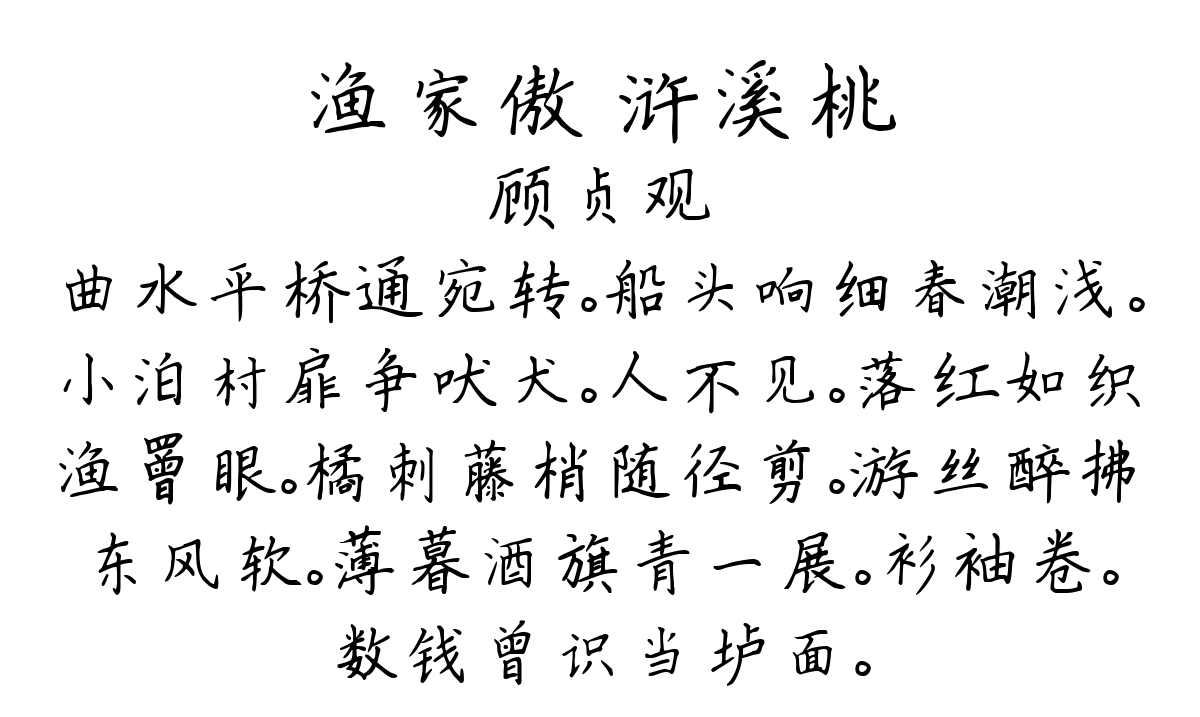 渔家傲 浒溪桃
顾贞观
曲水平桥通宛转。船头响细春潮浅。
小泊村扉争吠犬。人不见。落红如织
渔罾眼。橘刺藤梢随径剪。游丝醉拂
东风软。薄暮酒旗青一展。衫袖卷。
数钱曾识当垆面。